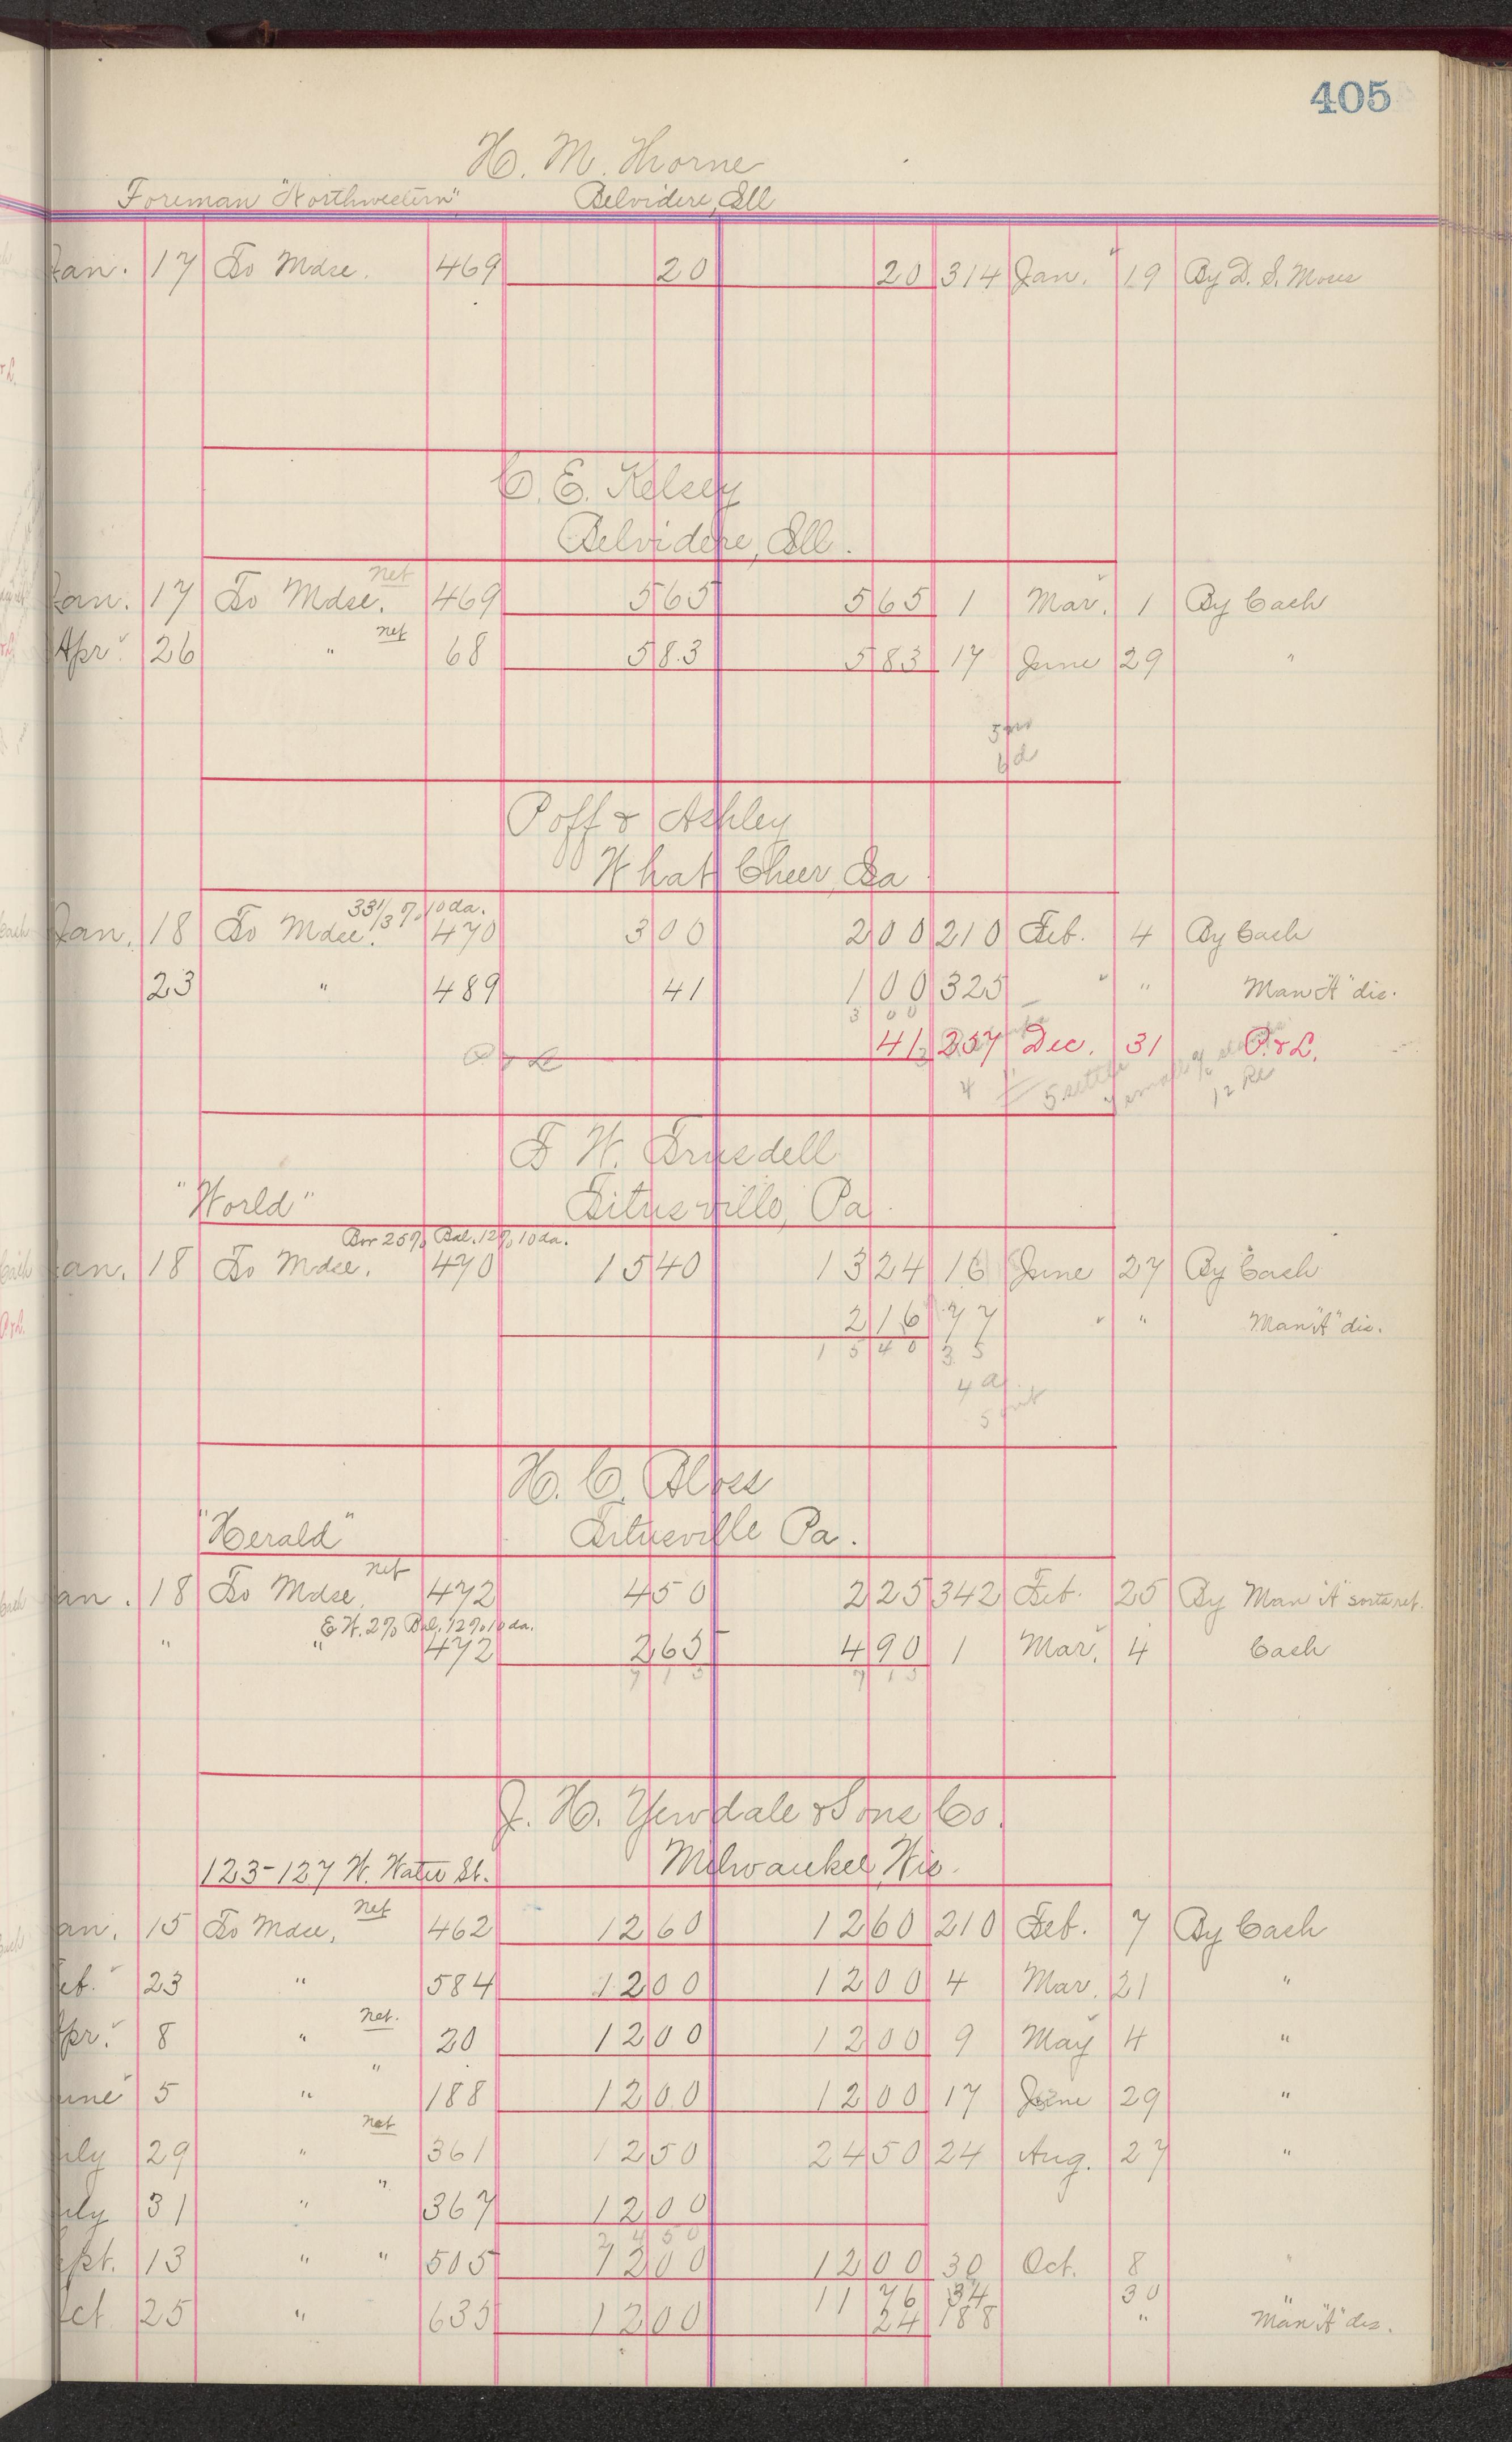 405
H. M. Thorne
Foreman "Northwestern" Belvidere, Ill
Jan. 17 To Mdse. 469 20 20 314 Jan. 19 By D. S. Moses
C. E. Kelsey
Belvidere, Ill.
net
Jan. 17 To Mdse. 469 565 565 1 Mar. 1 By Cash
net
Apr. 26 " 68 583 583 17 June 29 "
6d
Poff & Ashley
What Cheer, Ia
33 1/3 % 10 da.
Jan. 18 To Mdse. 470 300 200 210 Feb. 4 By Cash
23 " 489 41 100 325 " " Man "A" dis.
300
P & L 41 257 Dec. 31 P. & L.
4 5 settle small % 12 Re
F W. Truesdell
"World" Titusville, Pa
Bor 25% Bal. 12% 10 da.
Jan. 18 To Mdse. 470 1540 1324 16 June 27 By Cash
216 77 " " Man "A" dis.
1540 35
4 a
5
H. C. Bloss
"Herald" Titusville Pa.
net
Jan. 18 To Mdse. 472 450 225 342 Feb. 25 By Man "A" sorts ret.
E W. 2% Bal. 12% 10 da.
" " 472 265 490 1 Mar. 4 Cash
715 715
J. H. Yewdale & Sons Co.
123-127 W. Water St. Milwaukee, Wis.
net
Jan. 15 To Mdse, 462 1260 1260 210 Feb. 7 By Cash
Feb. 23 " 584 1200 1200 4 Mar. 21 "
net.
Apr. 8 " 20 1200 1200 9 May 4 "
"
June 5 " 188 1200 1200 17 June 29 "
net
July 29 " 361 1250 2450 24 Aug. 27 "
"
July 31 " 367 1200
2450
Sept. 13 " " 505 1200 1200 30 Oct. 8 "
1176 34 30 "
Oct. 25 " 635 1200 24 188 " Man "A" dis.